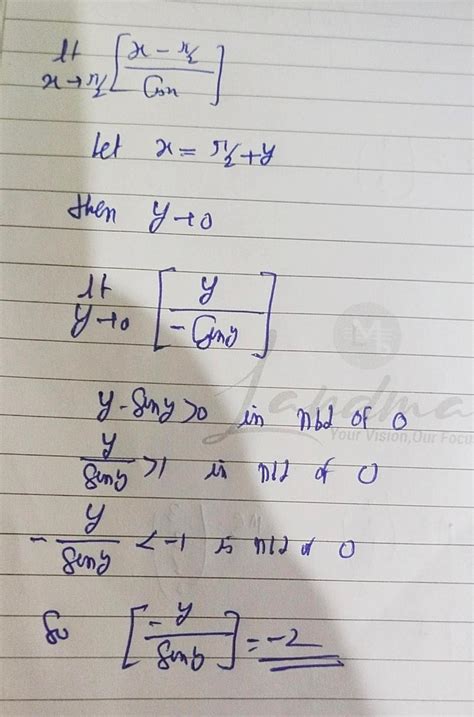 lt x→π/2 [x - π/2 / Cosx]
let x = π/2 + y
then y→0
lt y→0 [y / - Siny]
y - siny > 0 in nbd of 0
y / siny > 1 in nbd of 0
- y / siny < -1 in nbd of 0
So [-y / siny] = -2
Landma
Your Vision,Our Focu